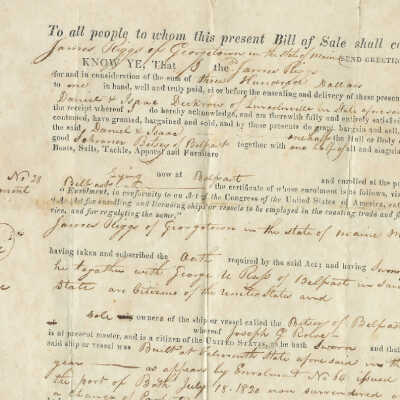 To all people to whom this present Bill of Sale shall co
James Riggs of Georgetown in the state of Maine SEND GREETIN
KNOW YE, That I the James Riggs
for and in consideration of the sum of three Hundred Dollars
to one in hand, well and truly paid, at or before the ensealing and delivery of these presen
Daniel & Isaac of Lincolnville in state
the receipt whereof I do hereby acknowledge, and am therewith fully and entirely satisfied
contented, have granted, bargained and sold, and by these presents do grant, bargain and sell,
the said Daniel & Isaac one half the Hull or Body o
good Schooner Betsey of Belfast together with one half all and singula
Boats, Sails, Tackle, Apparel and Furniture
No 38
laying now at Belfast and enrolled at the po
Belfast the certificate of whose enrolment is as follows, viz
"Enrolment, in conformity to an Act of the Congress of the United States of America, enti
"An Act for enrolling and licensing ships or vessels to be employed in the coasting trade and fis
ries, and for regulating the same."
James Riggs of Georgetown in the state of maine
having taken and subscribed the Oath required by the said Act; and having Sworn
he together with George U Russ of Belfast in said
State are Citizens of the United States and
Sole owners of the ship or vessel called the Betsey of Belfast
whereof Joseph P
is at present master, and is a citizen of the UNITED STATES, as he hath Sworn and that
said ship or vessel was Built at Falmouth State aforesaid in the
year as appears by Enrolment No 64 issued
the port of Bath July 18. 1820 now surrendered
a Change of